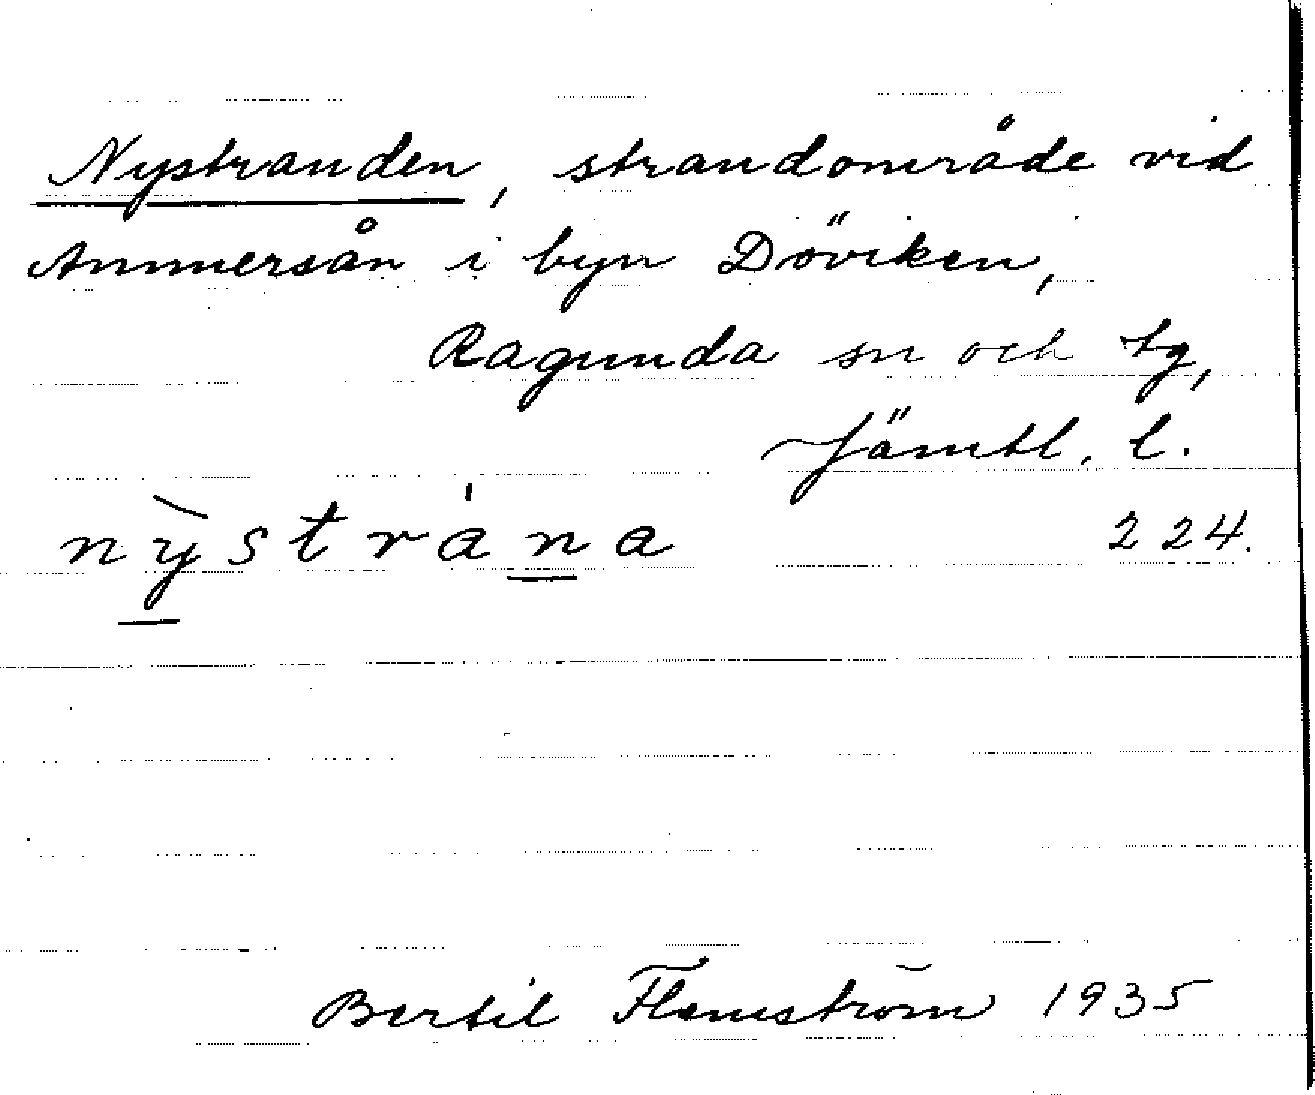 Nystranden, strandområde vid
Ammersån i byn Döviken,
Ragunda sn och tg,
Jämtl. l.
nỳstrána 224.
Bertil Flemström 1935